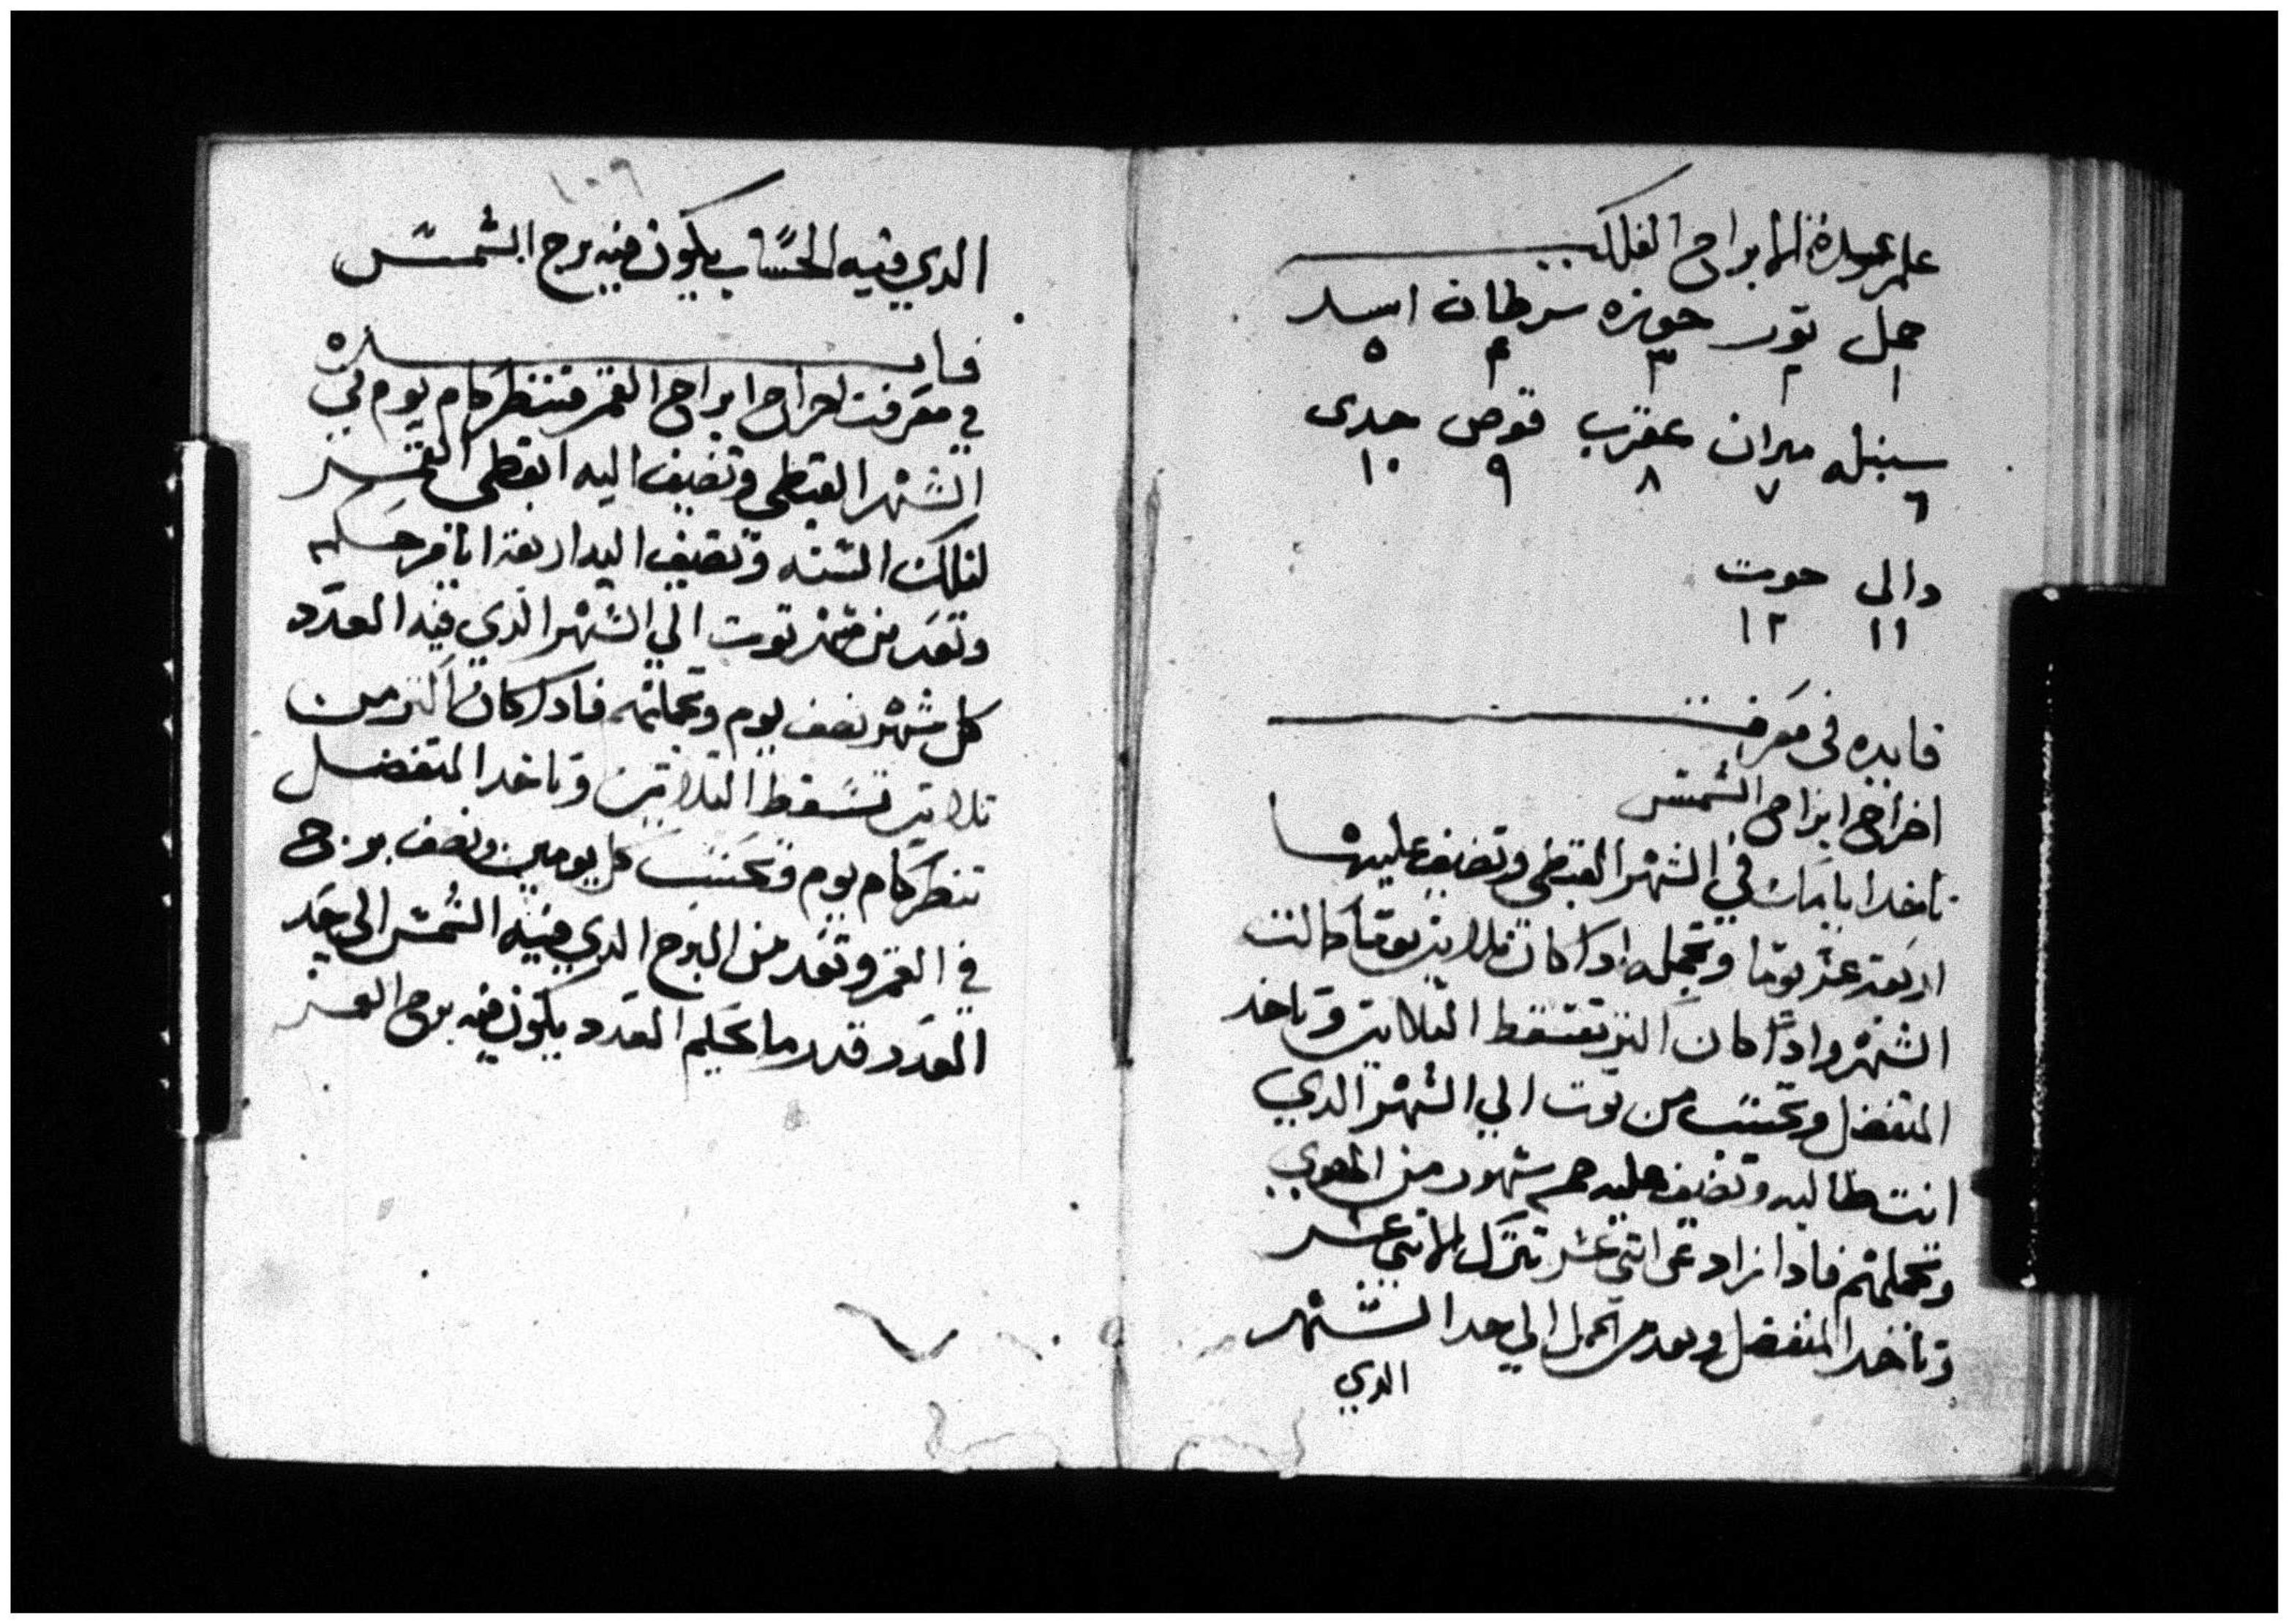 علم عدة الابراج الفلك
حمل تور جوزه سرطان اسد
١ ٢ ٣ ٤ ٥
سنبله ميزان عقرب قوص جدى
٦ ٧ ٨ ٩ ١٠
دالى حوت
١١ ١٢
فايده فى معرفة
اخراج ابراج الشمس
تاخد ايامات في الشهر القبطي وتضيف عليها
اربعة عشر يوما وتجمله ادا كان تلاتين يوما كانت
الشهر وادا كان اكتر تسقط التلاتين وتاخد
المتفضل وتحسب من توت الي الشهر الدي
انت طالبه وتضيف عليه شهور من
وتجملهم فادا زاد عن اتني عشر تترك الاتني عشر
وتاخد المتفضل وتعد من الحمل الي حد الشهر
الدي
١٠٩
الدي فيه الحساب يكون فيه برج الشمس
فايده
في معرفت اخراج ابراج القمر فتنظر كام يوم في
الشهر القبطي وتضيف اليه ابقطي القمر
لتلك السنه وتضيف اليه اربعة
وتعد من شهر توت الي الشهر الدي فيه العدد
كل شهر نصف يوم وتجملهم فادا كان اكتر من
تلاتين تسقط التلاتين وتاخد المتفضل
تنظر كام يوم وتحسب كل يومين ونصف برج
في القمر وتعد من البرج الدي فيه الشمس الي حد
العدد قدر ما يكون فيه برج القمر